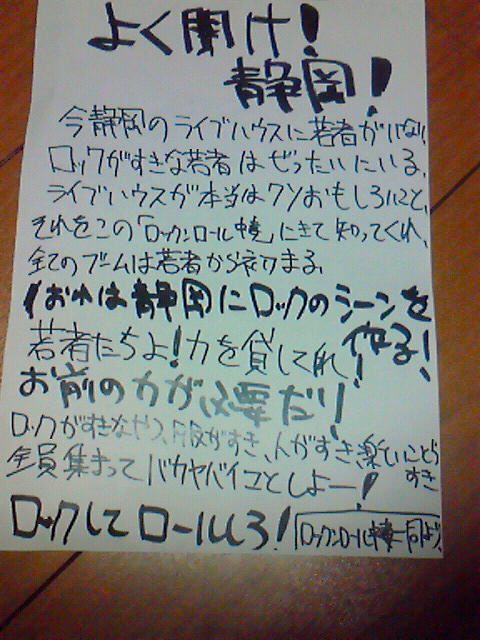 よく聞け!
静岡!
今静岡のライブハウスに若者がいない。
ロックがすきな若者はぜったいにいる。
ライブハウスが本当はクソおもしろいこと、
それをこの「ロックンロール」にきて知ってくれ。
全てのブームは若者から始まる。
おれは静岡にロックのシーンを
作る!
若者たちよ!力を貸してくれ!
お前の力が必要だ!
ロックがすきなやつ、服がすき、人がすき、楽しいことすき
全員集まってバカヤバイコとしよー!
ロックしてロールしろ!
ロックンロール 一同より